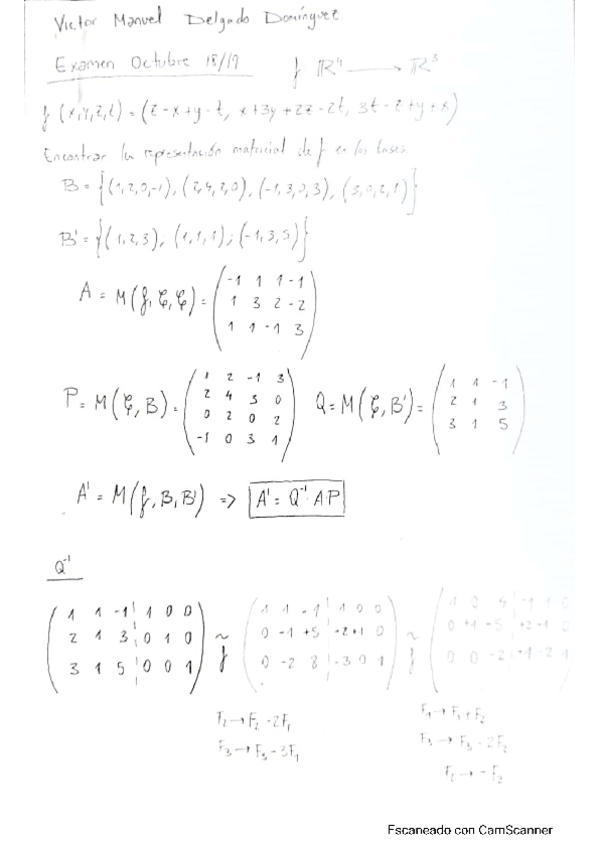 Victor Manuel Delgado Domínguez
Examen Octubre 18/19 f ℝ⁴ → ℝ³
f (x,y,z,t) = (z-x+y-t, x+3y+2z-2t, 3t-z+y+x)
Encontrar la representación matricial de f en las bases
B = {(1,2,0,-1), (2,4,2,0), (-1,3,0,3), (3,0,2,1)}
B' = {(1,2,3), (1,1,1); (-1,3,5)}
A = M(f,C,C) = (-1 1 1 -1
1 3 2 -2
1 1 -1 3)
P = M(C,B) = (1 2 -1 3
2 4 3 0
0 2 0 2
-1 0 3 1) Q = M(C,B') = (1 1 -1
2 1 3
3 1 5)
A' = M(f,B,B') => A' = Q⁻¹ A P
Q⁻¹
(1 1 -1 | 1 0 0
2 1 3 | 0 1 0
3 1 5 | 0 0 1) ~f (1 1 -1 | 1 0 0
0 -1 +5 | -2 +1 0
0 -2 8 | -3 0 1) ~f (1 0 4 | -1 1 0
0 +1 -5 | +2 -1 0
0 0 -2 | +1 -2 1)
F₂ → F₂ - 2F₁
F₃ → F₃ - 3F₁
F₁ → F₁ + F₂
F₃ → F₃ - 2F₂
F₂ → -F₂
Escaneado con CamScanner